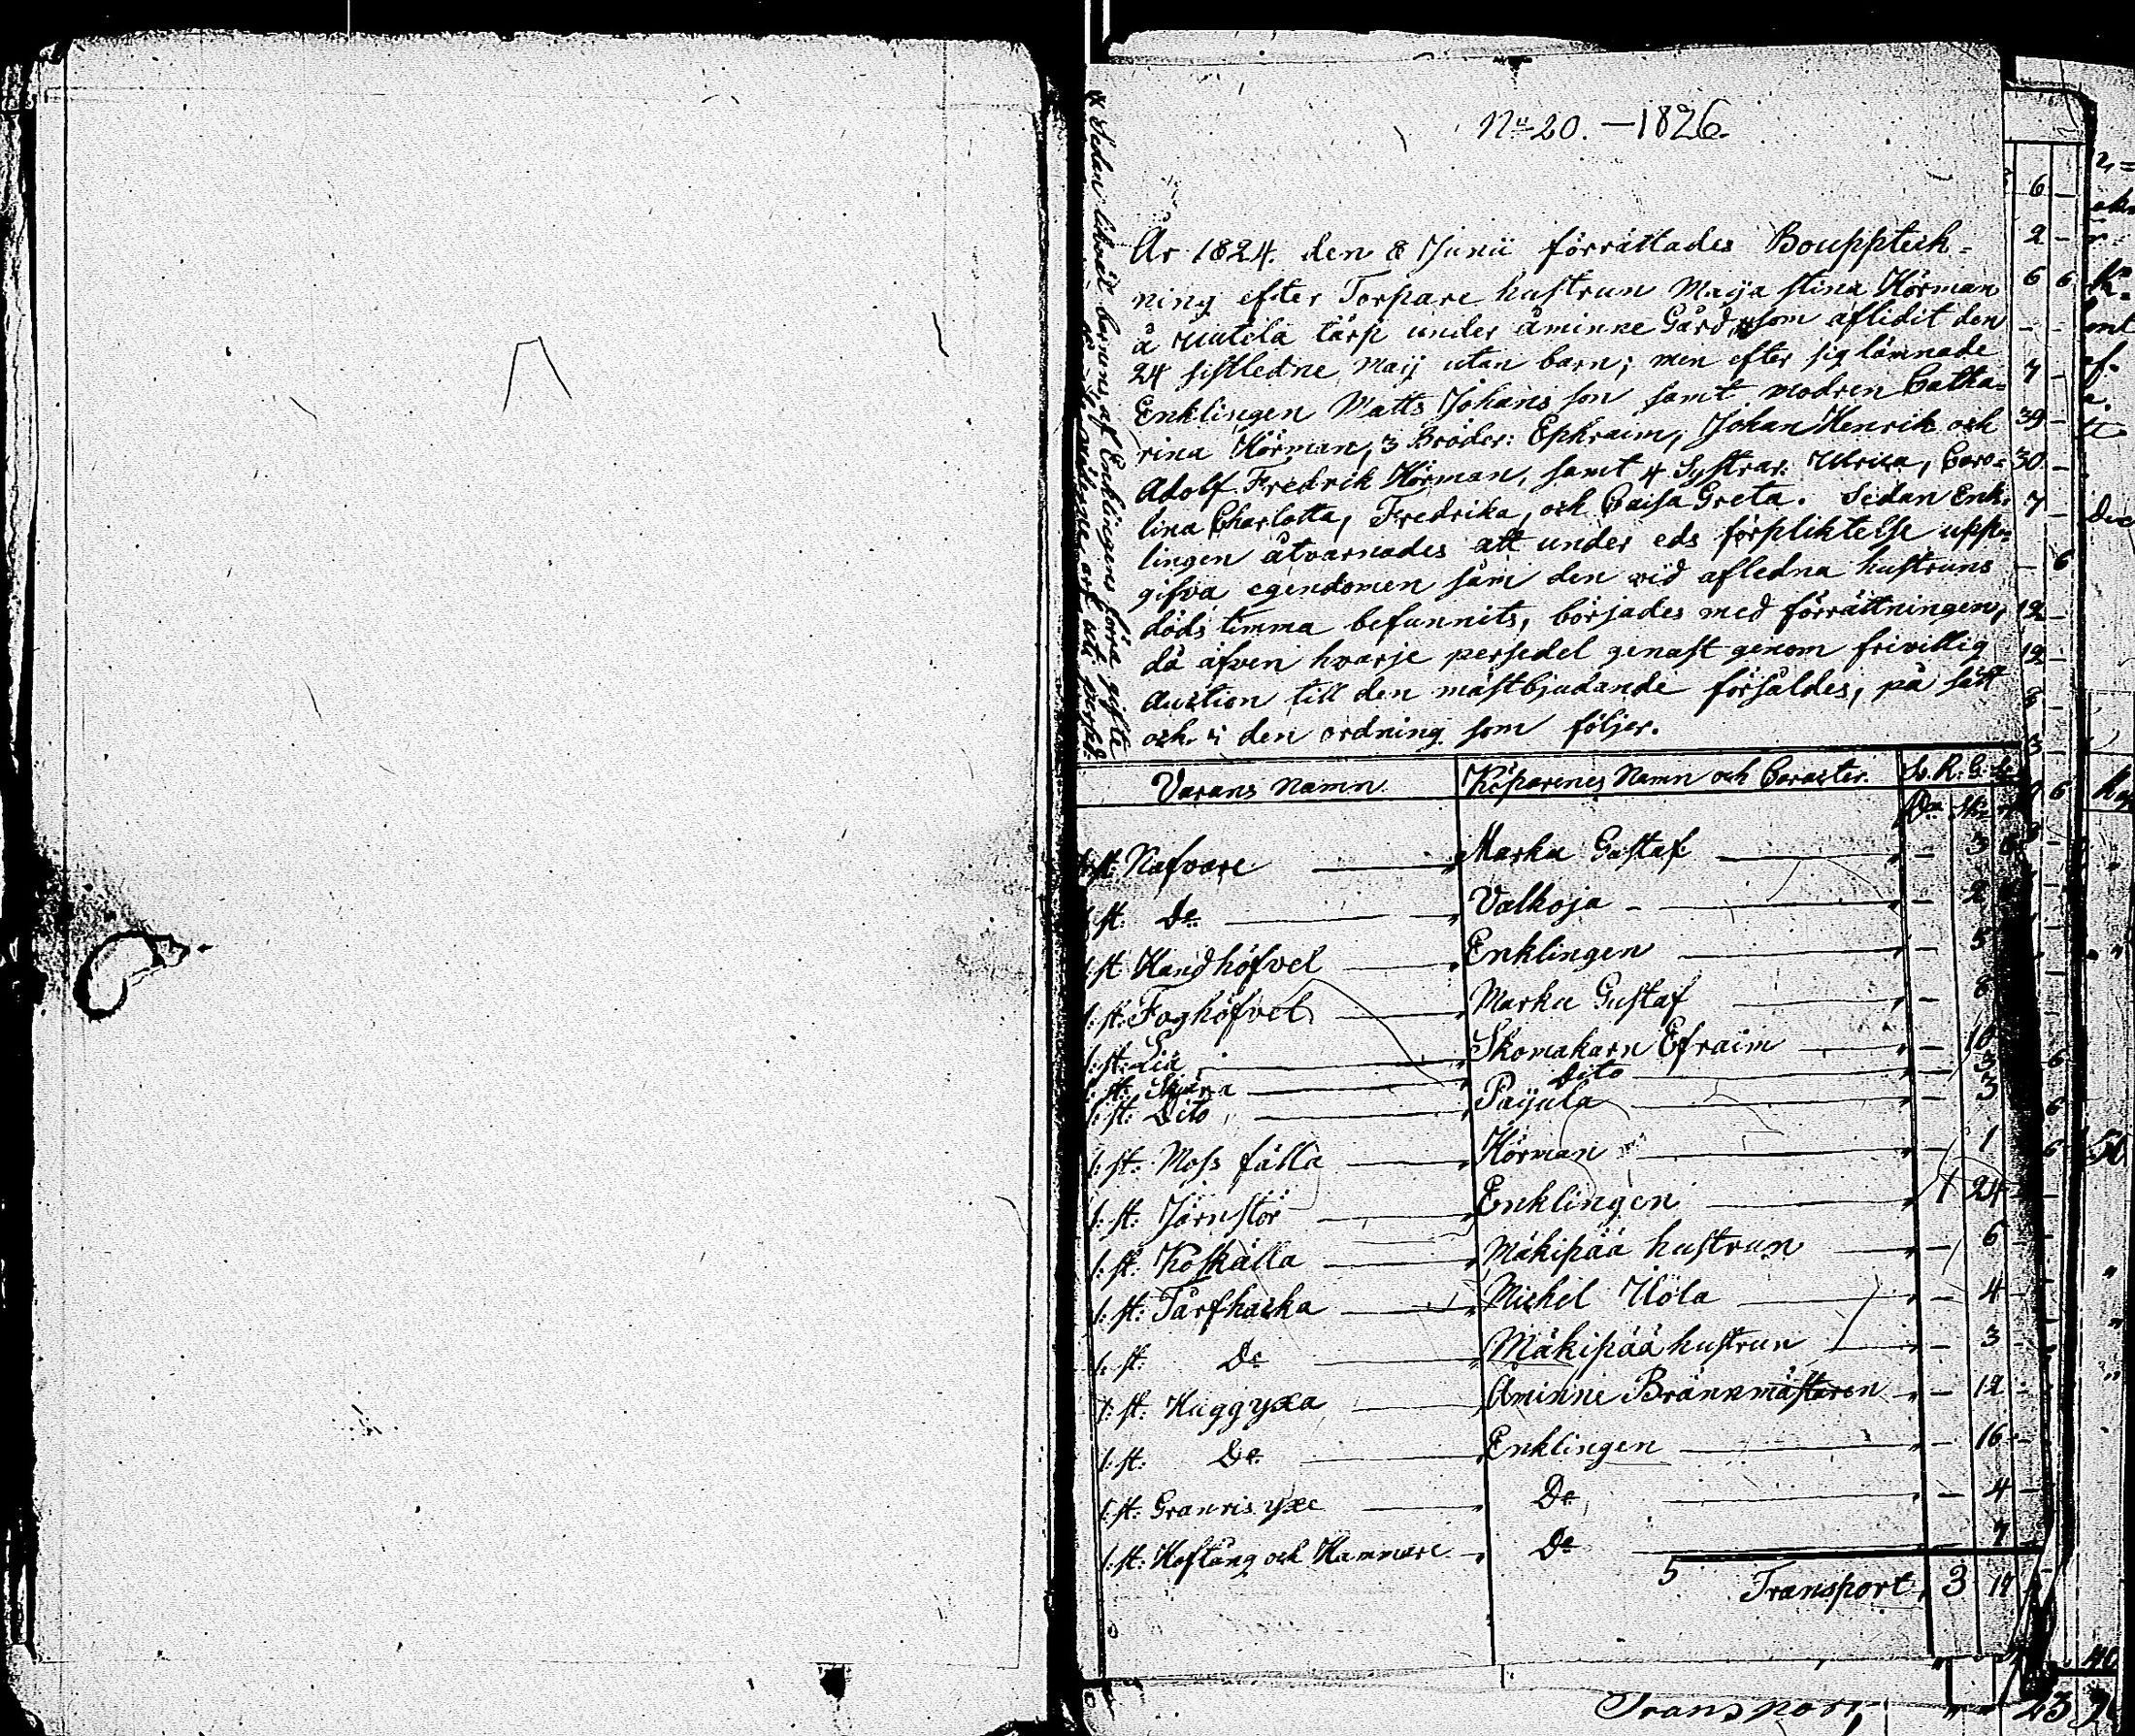 No 20. — 1826.
År 1824. den 8 Junii förrättades Bouppteck=
ning efter Torpare hustrun Maija Stina Hörman
å Uutela tårp under Åminne Gård, som aflidit den
24 sistledne Maij utan barn; men efter sig lämnade
Enklingen Matts Johansson samt modren Catha=
rina Hörman, 3 Bröder: Ephraim, Johan Henrik och
Adolf Fredrik Hörman, samt 4 Systrar: Ulrica, Caro=
lina Charlotta, Fredrika, och Caisa Greta. Sedan Enk=
lingen åtvarnades att under eds förpliktelse uppe=
gifva egendomen såm den vid afledna hustruns
döds timma befunnits, börjades med förrättningen,
då äfven hvarje persedel genast genom frivillig
Auction till den mästbjudande försåldes, på sätt
och i den ordning som följer.
x Sedan likväl barnen af Enklingens förra gifte
Varans Namn. Köparenes Namn och Caracter. S. R. G. S.
1 st. Nafvare — Marku Gustaf — 3 6
1 st. Do — Valkoja — 2
1 st Handhöfvel — Enklingen — 5
1: st: Foghöfvel — Marku Gustaf — 8
1: st: Lia — Skomakarn Efraim — 10
1: st: Skära — Dito — 3
1: st: Dito — Paijula — 3
1: st: Moss fälla — Hörman — 1
1: st: Järnstör — Enklingen 1 24
1: st: Koskälla — Mäkipää hustrun — 6
1: st: Tårfhacka — Michel Uöla — 4
1: st: Do — Mäkipää hustrun — 3
1: st: Huggyxa — Åminne Brännmästaren — 12
1: st: Do — Enklingen — 16
1: st: Granris yxe — Do — 4
1: st: Hoftång och Hammare — Do 7
5 Transport, 3 17
Transport,